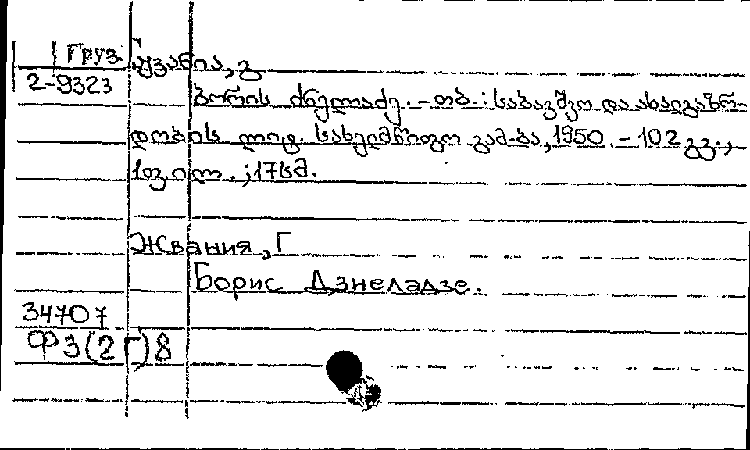 Груз
ჟვანია, გ
2-9323
ბორის ძნელაძე. - თბ.: საბავშვო და ახალგაზრ-
დობის ლიტ. სახელმწიფო გამ-ბა, 1950. - 102 გვ.,
1 ილ.; 17 სმ.
Жвания, Г
Борис Дзнеладзе.
34707
Ф3(2Г)8